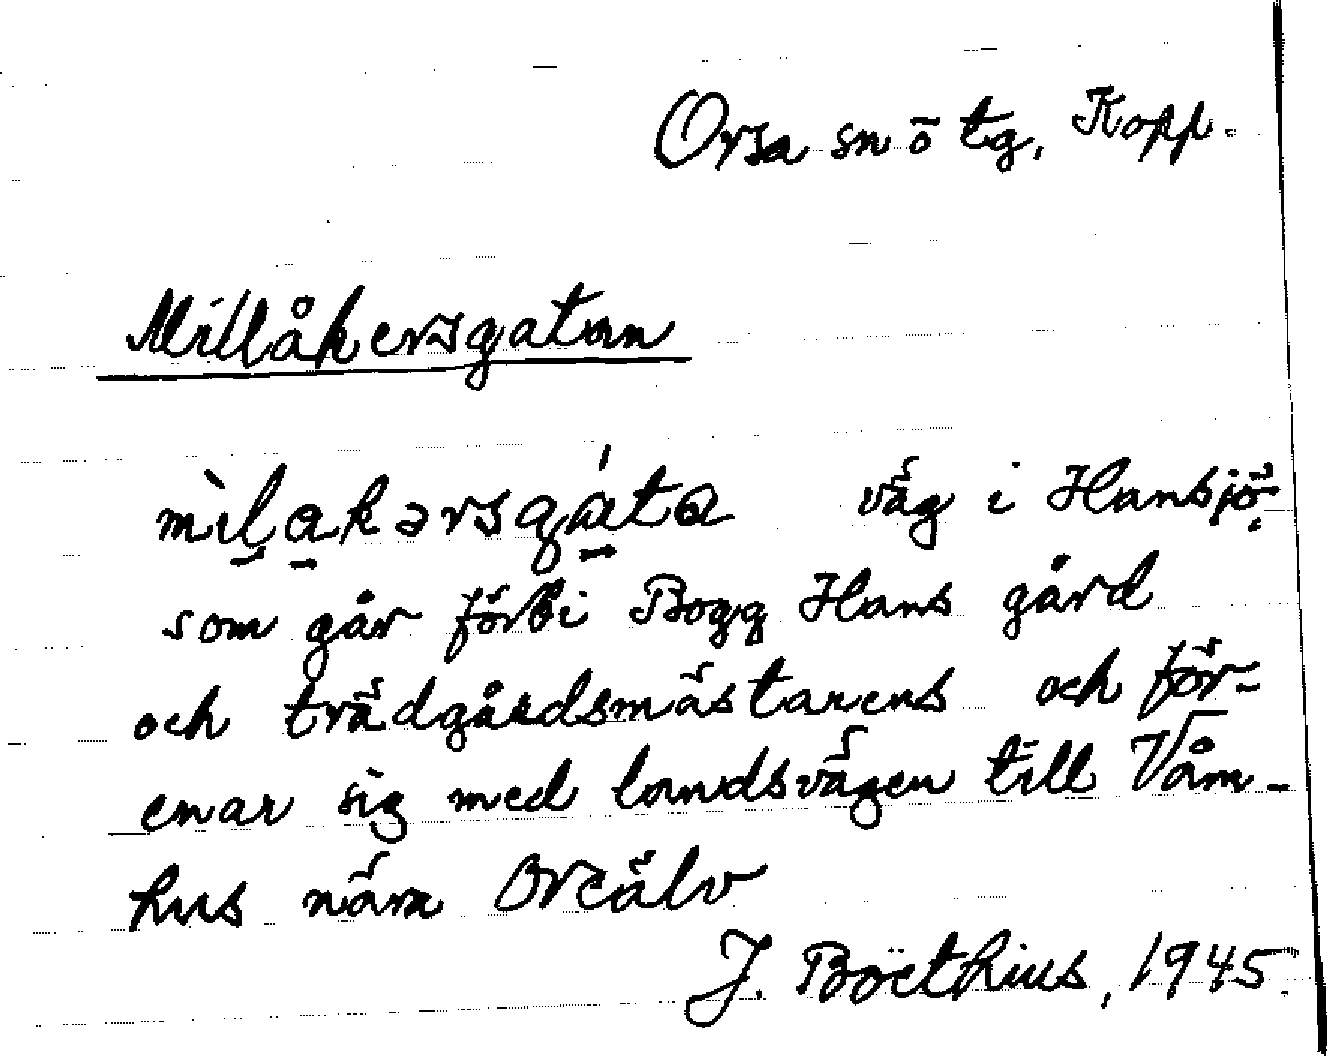 Orsa sn ō tg, Kopp.
Millåkersgatan
mìḷa̱kərsga̱'ta väg i Hansjö,
som går förbi Bogg Hans gård
och trädgårdsmästarens och för-
enar sig med landsvägen till Våm-
hus nära Oreälv
J. Boëthius, 1945.